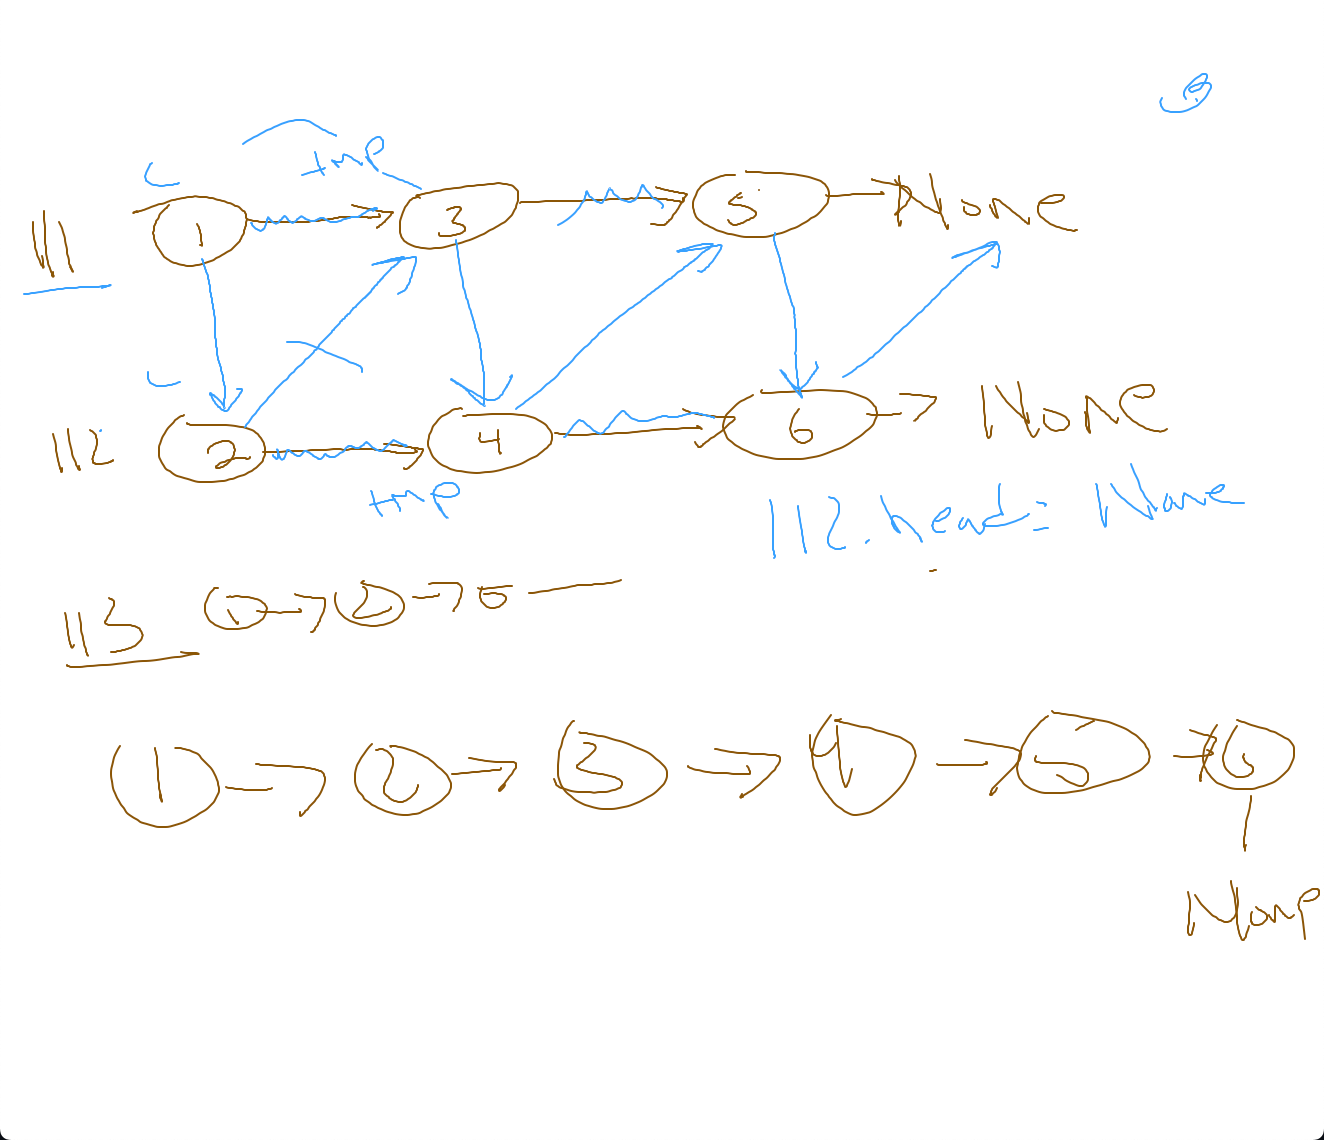 tmp
ll1 1 3 5 None
ll2 2 4 6 None
tmp
ll2.head = None
ll3 1 2
1 2 3 4 5 6
None